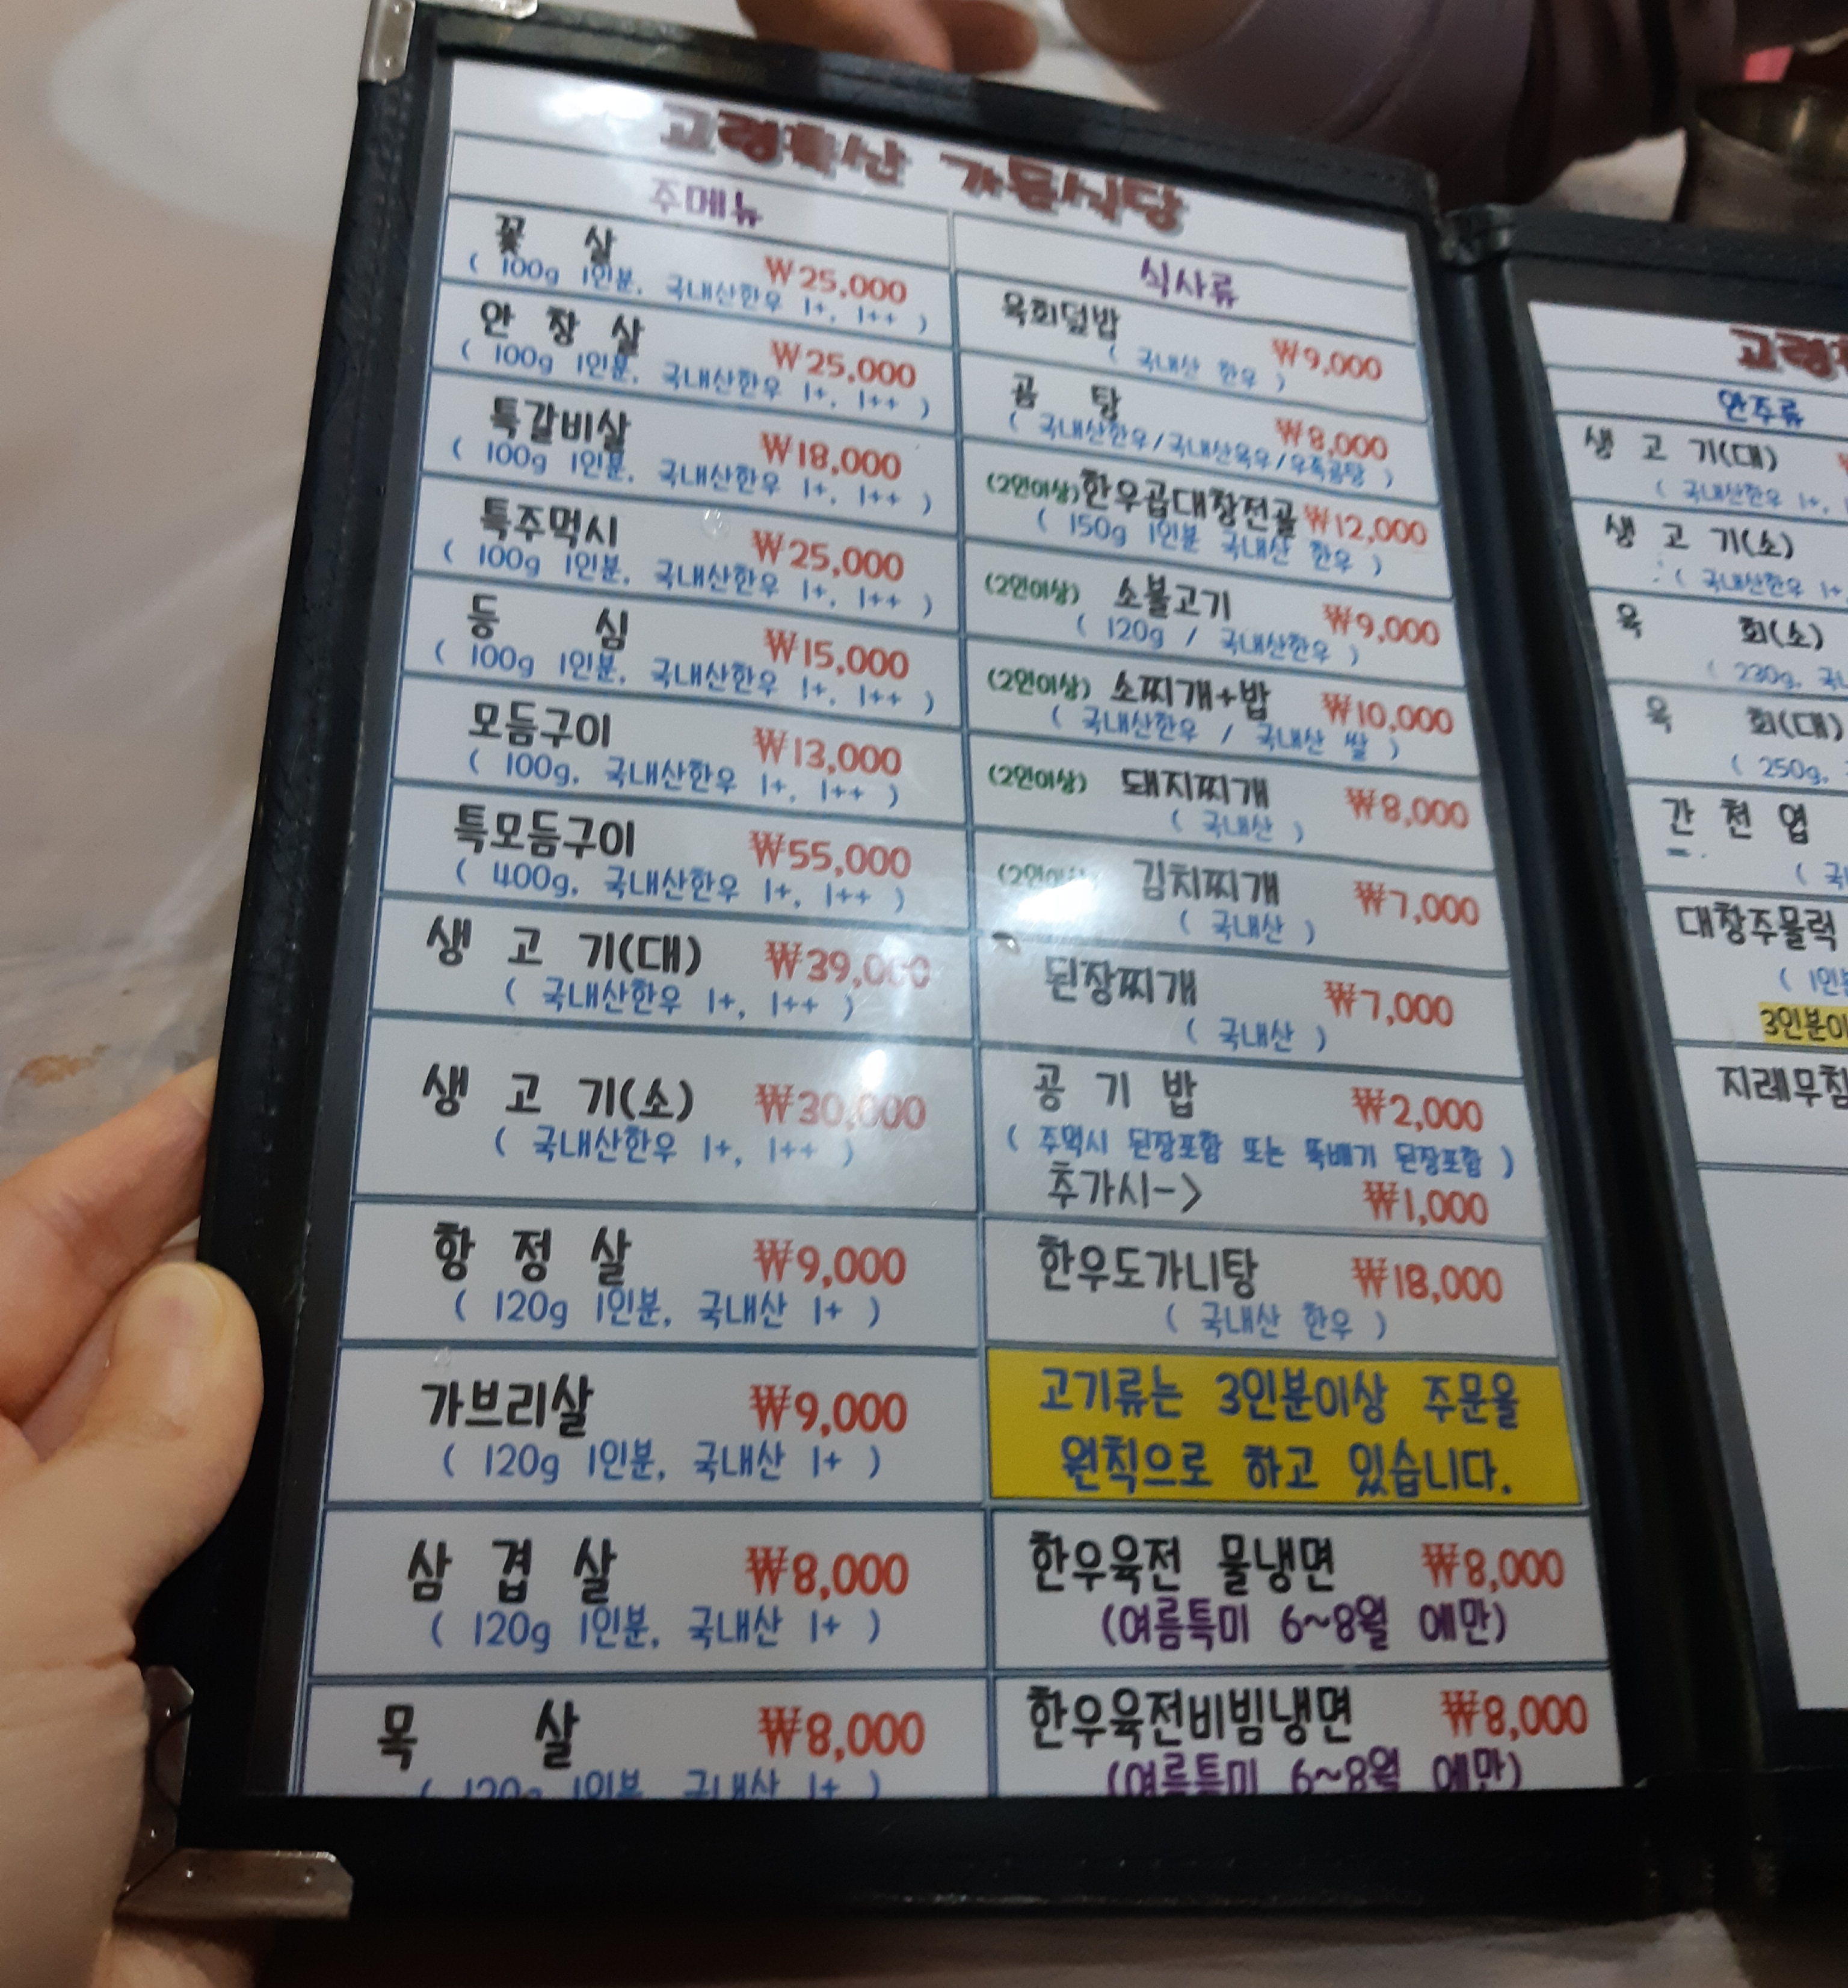 고령특산 가든식당
주메뉴
꽃 살 ₩25,000
( 100g 1인분, 국내산한우 1+, 1++ )
안 창 살 ₩25,000
( 100g 1인분, 국내산한우 1+, 1++ )
특갈비살 ₩18,000
( 100g 1인분, 국내산한우 1+, 1++ )
특주먹시 ₩25,000
( 100g 1인분, 국내산한우 1+, 1++ )
등 심 ₩15,000
( 100g 1인분, 국내산한우 1+, 1++ )
모듬구이 ₩13,000
( 100g, 국내산한우 1+, 1++ )
특모듬구이 ₩55,000
( 400g, 국내산한우 1+, 1++ )
생 고 기(대) ₩39,000
( 국내산한우 1+, 1++ )
생 고 기(소) ₩30,000
( 국내산한우 1+, 1++ )
항 정 살 ₩9,000
( 120g 1인분, 국내산 1+ )
가브리살 ₩9,000
( 120g 1인분, 국내산 1+ )
삼 겹 살 ₩8,000
( 120g 1인분, 국내산 1+ )
목 살 ₩8,000
( 120g 1인분, 국내산 1+ )
식사류
육회덮밥 ₩9,000
( 국내산 한우 )
곰 탕 ₩8,000
( 국내산한우/국내산육우/우족곰탕 )
(2인이상)한우곱대창전골 ₩12,000
( 150g 1인분 국내산 한우 )
(2인이상) 소불고기 ₩9,000
( 120g / 국내산한우 )
(2인이상) 소찌개+밥 ₩10,000
( 국내산한우 / 국내산 쌀 )
(2인이상) 돼지찌개 ₩8,000
( 국내산 )
(2인이상) 김치찌개 ₩7,000
( 국내산 )
된장찌개 ₩7,000
( 국내산 )
공 기 밥 ₩2,000
( 주먹시 된장포함 또는 뚝배기 된장포함 )
추가시-> ₩1,000
한우도가니탕 ₩18,000
( 국내산 한우 )
고기류는 3인분이상 주문을
원칙으로 하고 있습니다.
한우육전 물냉면 ₩8,000
(여름특미 6~8월 에만)
한우육전비빔냉면 ₩8,000
(여름특미 6~8월 에만)
고령
안주류
생 고 기(대)
( 국내산한우 1+,
생 고 기(소)
( 국내산한우 1+
육 회(소)
( 230g,
육 회(대)
( 250g,
간 천 엽
대창주물럭
3인분이
지레무침